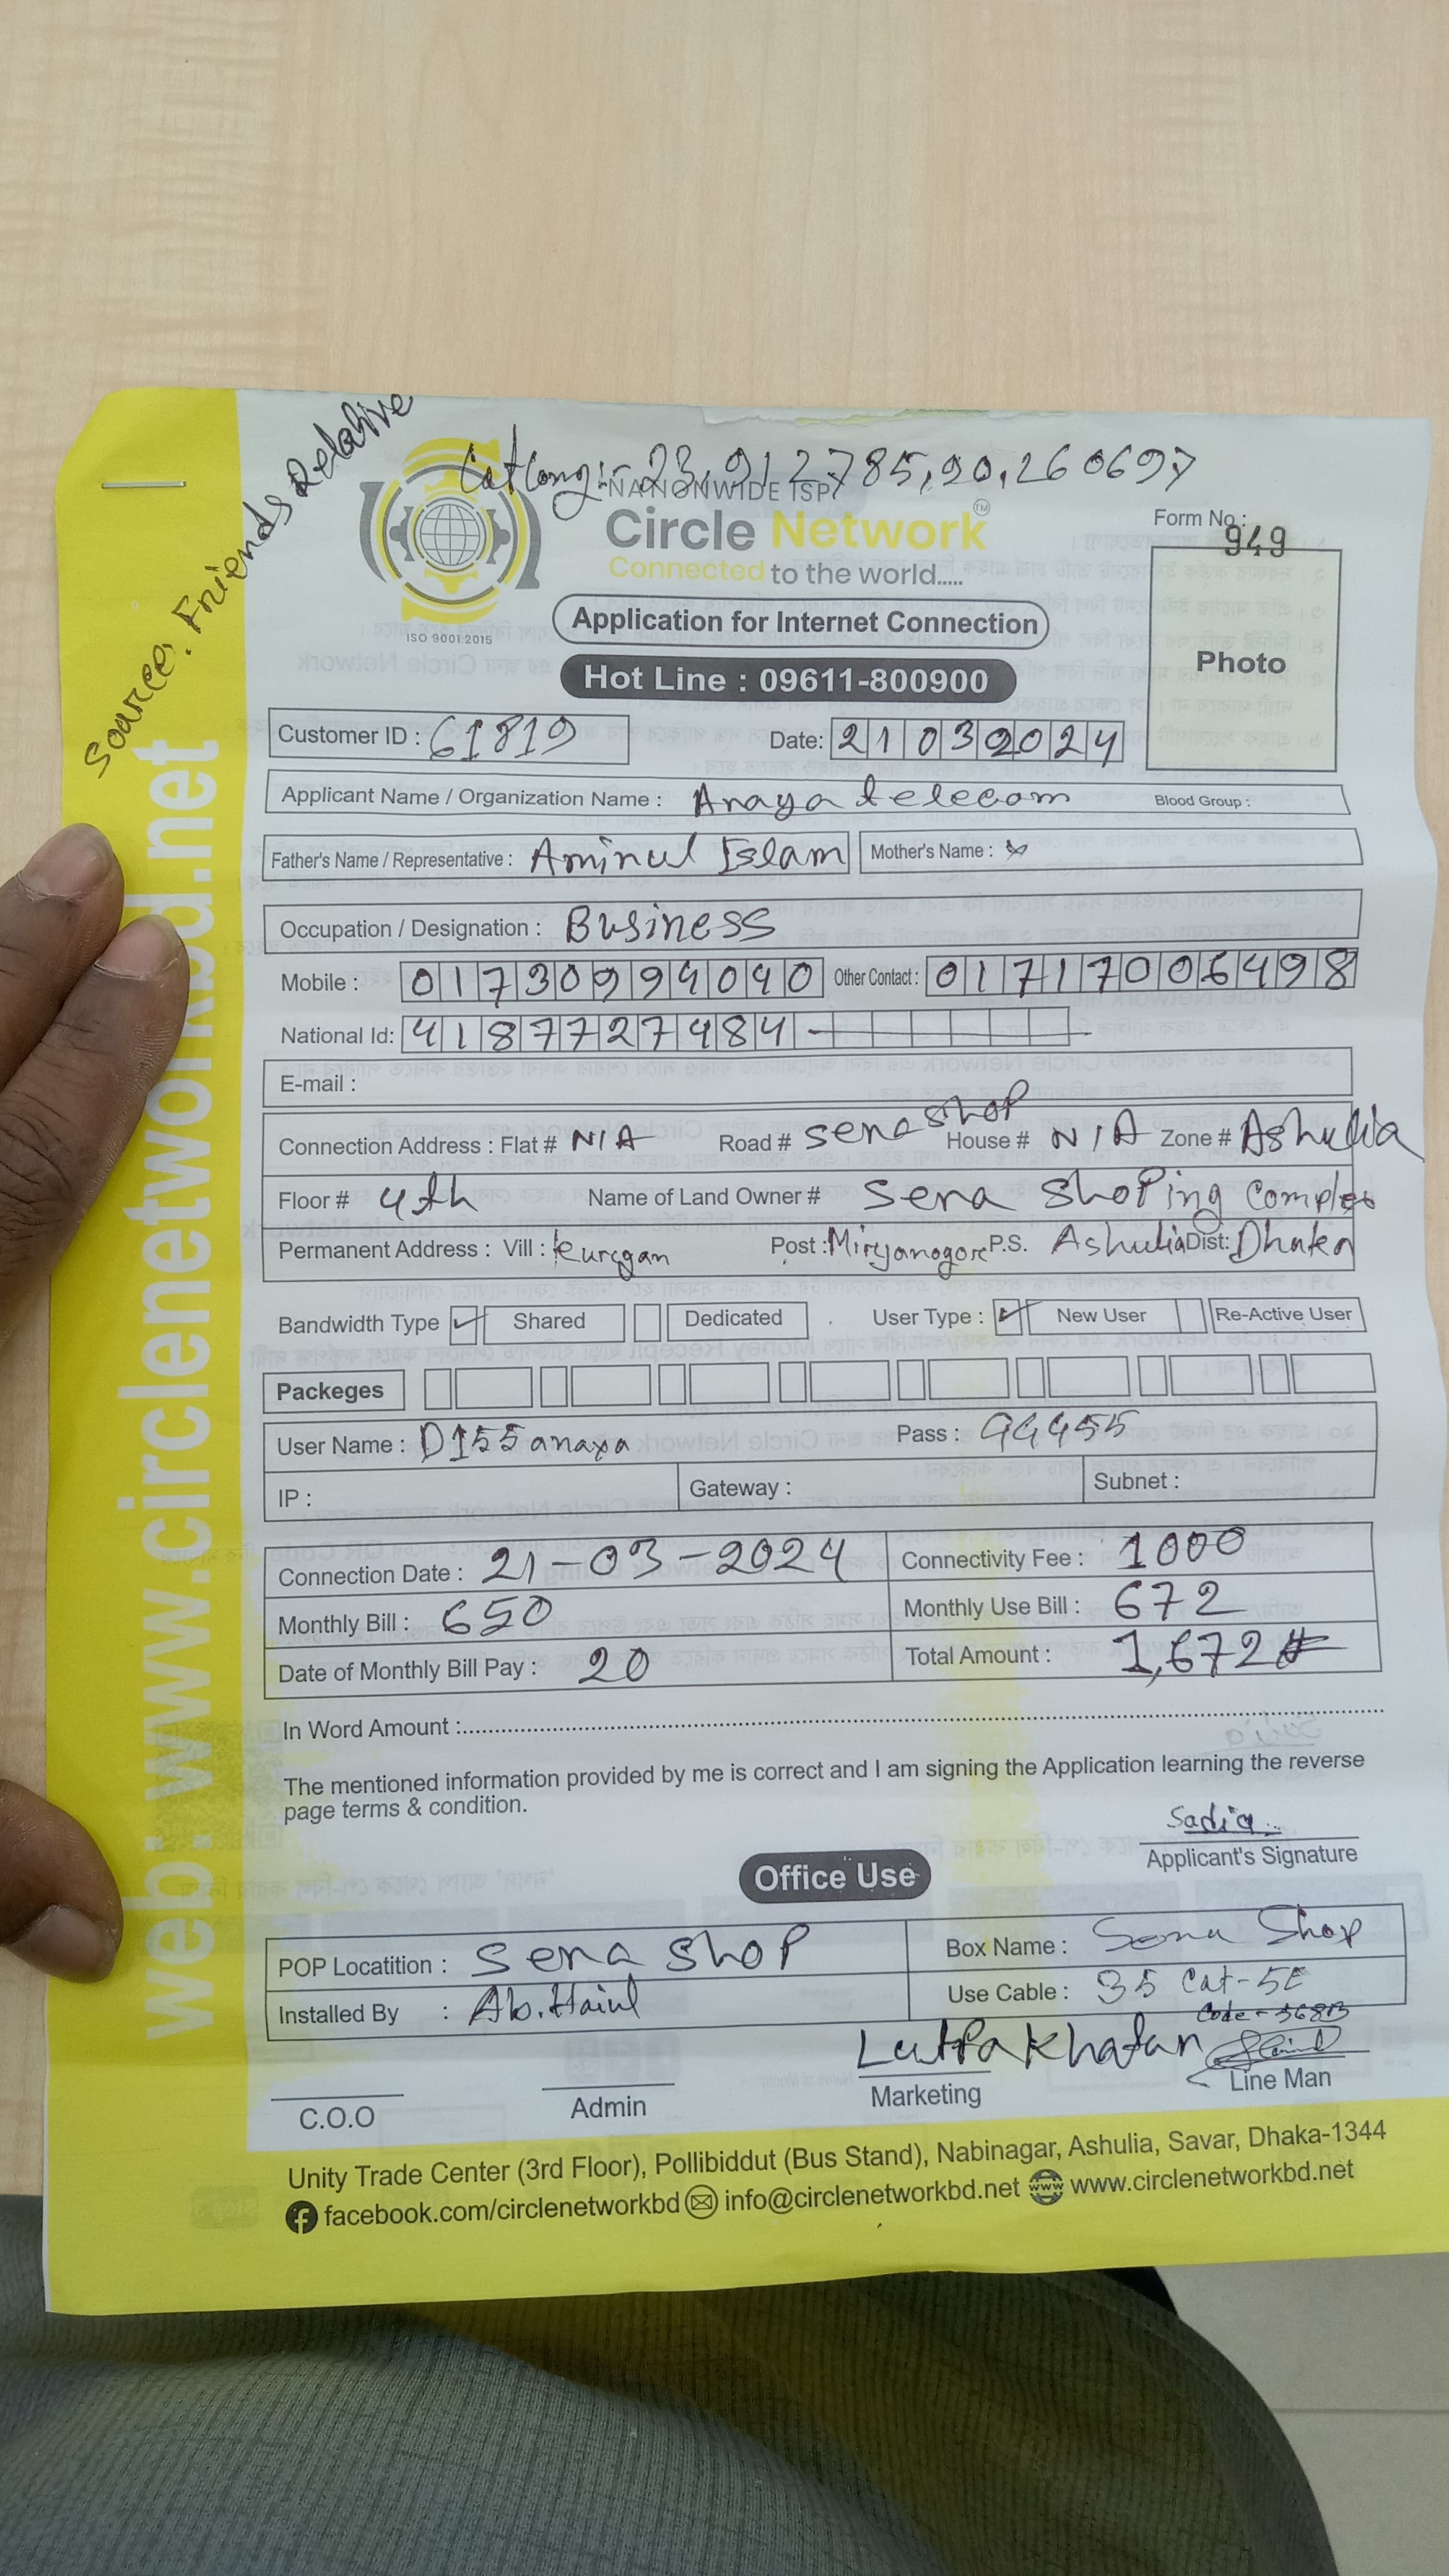 Source: Friends Relative
Lat Long:- 23,912785,90,260697
NATIONWIDE ISP
Circle Network TM
Connected to the world.....
ISO 9001:2015
Form No.:
949
Application for Internet Connection
Photo
Hot Line : 09611-800900
Customer ID : 61819 Date: 21032024
Applicant Name / Organization Name : Anaya telecom Blood Group :
Father's Name / Representative : Aminul Islam Mother's Name : ×
Occupation / Designation : Business
Mobile : 01730994040 Other Contact : 01717006498
National Id: 4187727484
E-mail :
Connection Address : Flat # N/A Road # sena shop House # N/A Zone # Ashulia
Floor # 4th Name of Land Owner # Sena Shoping Complex
Permanent Address : Vill : Post : P.S. Ashulia Dist: Dhaka
Bandwidth Type ✓ Shared Dedicated User Type : ✓ New User Re-Active User
Packeges
User Name : Pass : 44455
IP : Gateway : Subnet :
Connection Date : 21-03-2024 Connectivity Fee : 1000
Monthly Bill : 650 Monthly Use Bill : 672
Date of Monthly Bill Pay : 20 Total Amount : 1,672
In Word Amount :
The mentioned information provided by me is correct and I am signing the Application learning the reverse
page terms & condition.
Sadia
Applicant's Signature
Office Use
POP Locatition : Sena Shop Box Name : Sena Shop
Installed By : Use Cable : 35 Cat-5E
Code - 56813
Lutfa Khatan
C.O.O Admin Marketing Line Man
Unity Trade Center (3rd Floor), Pollibiddut (Bus Stand), Nabinagar, Ashulia, Savar, Dhaka-1344
facebook.com/circlenetworkbd info@circlenetworkbd.net www.circlenetworkbd.net
web: www.circlenetworkbd.net